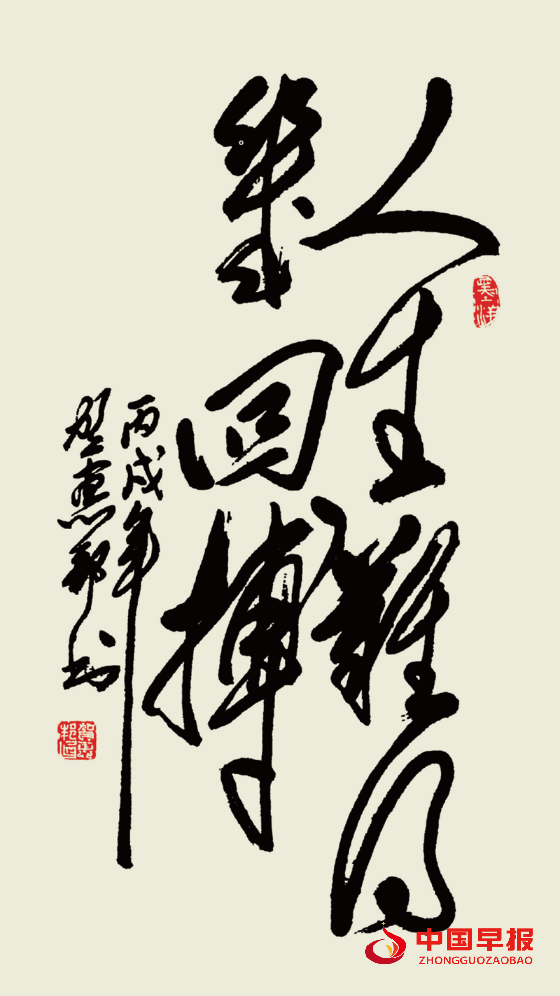 人生難得
幾回搏
丙戌年
憲邦书
中国早报
ZHONGGUOZAOBAO